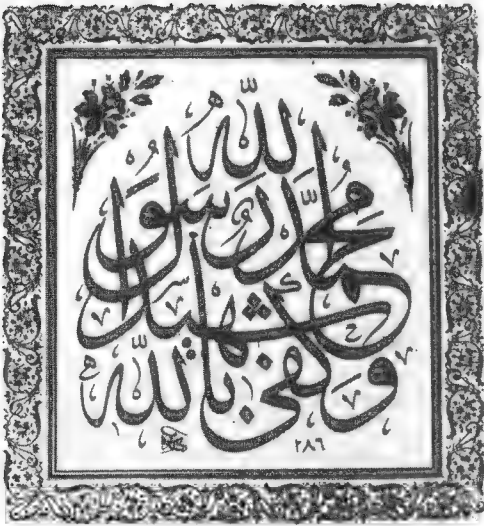 وكفى بالله شهيدا
محمد رسول الله
٢٨٦